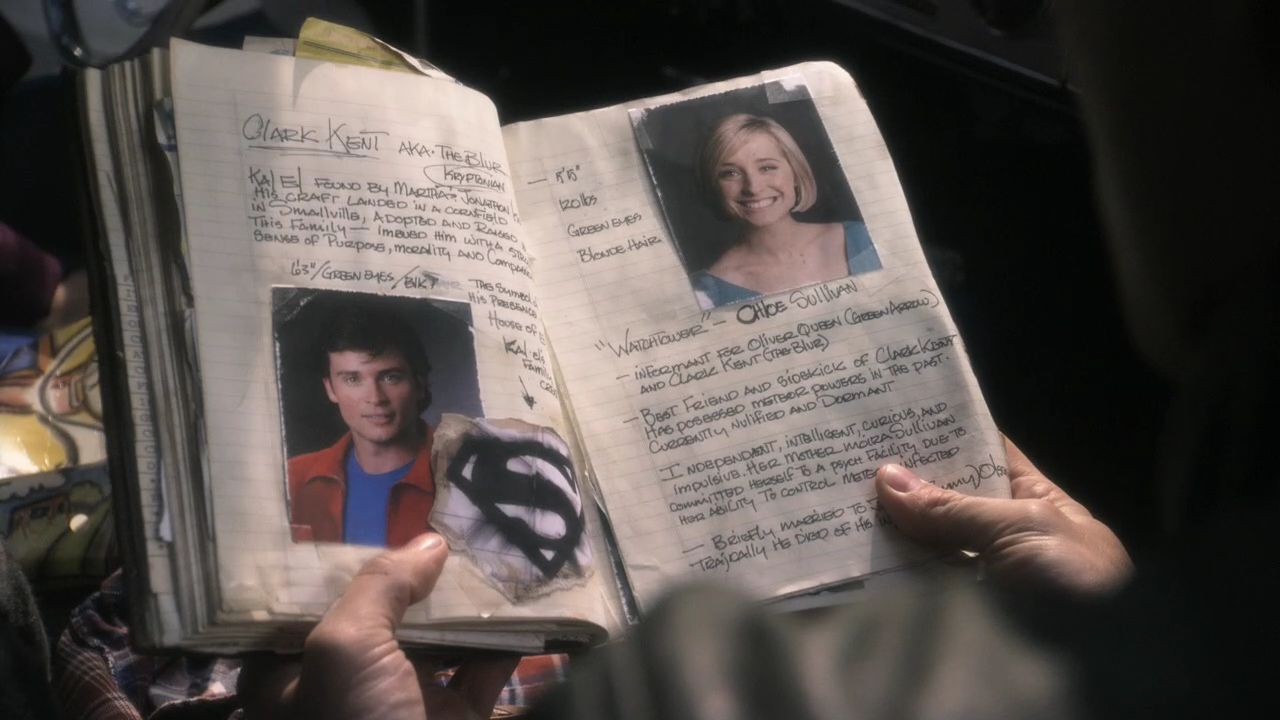 CLARK KENT AKA. THE BLUR
KRYPTONIAN
KAL EL FOUND BY MARTHA & JONATHON
HIS CRAFT LANDED IN A CORNFIELD
IN SMALLVILLE, ADOPTED AND RAISED
THIS FAMILY — IMBUED HIM WITH A
SENSE OF PURPOSE, MORALITY AND
6'3"/GREEN EYES/BLK HAIR
THE SYMBOL
HIS PRESENCE
HOUSE OF
KAL-EL'S
FAMIL
S
— 5'5"
120 lbs
GREEN EYES
BLONDE HAIR
"WATCHTOWER" — CHLOE SULLIVAN
— INFORMANT FOR OLIVER QUEEN (GREEN ARROW)
AND CLARK KENT (THE BLUR)
— BEST FRIEND AND SIDEKICK OF CLARK KENT
HAS POSSESSED METEOR POWERS IN THE PAST.
CURRENTLY NULIFIED AND DORMANT.
INDEPENDANT, INTELLIGENT, CURIOUS, AND
IMPULSIVE. HER MOTHER MOIRA SULLIVAN
COMMITTED HERSELF TO A PSYCH FACILITY DUE TO
HER ABILITY TO CONTROL METEOR INFECTED
— BRIEFLY MARRIED TO
TRAJICALLY HE DIED OF HIS